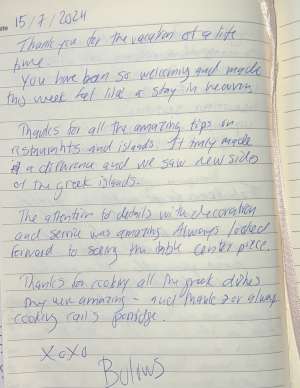 15/7/2024
Thank you for the vacation of a life
time.
You have been so welcoming and made
this week feel like a stay in heaven
Thanks for all the amazing tips on
restaurants and islands. It truly made
a difference and we saw new sides
of the greek islands.
The attention to details with decoration
and service was amazing. Always looked
forward to seeing the table center piece.
Thanks for cooking all the greek dishes
they were amazing - and thanks for always
cooking Carl's porridge.
XoXo